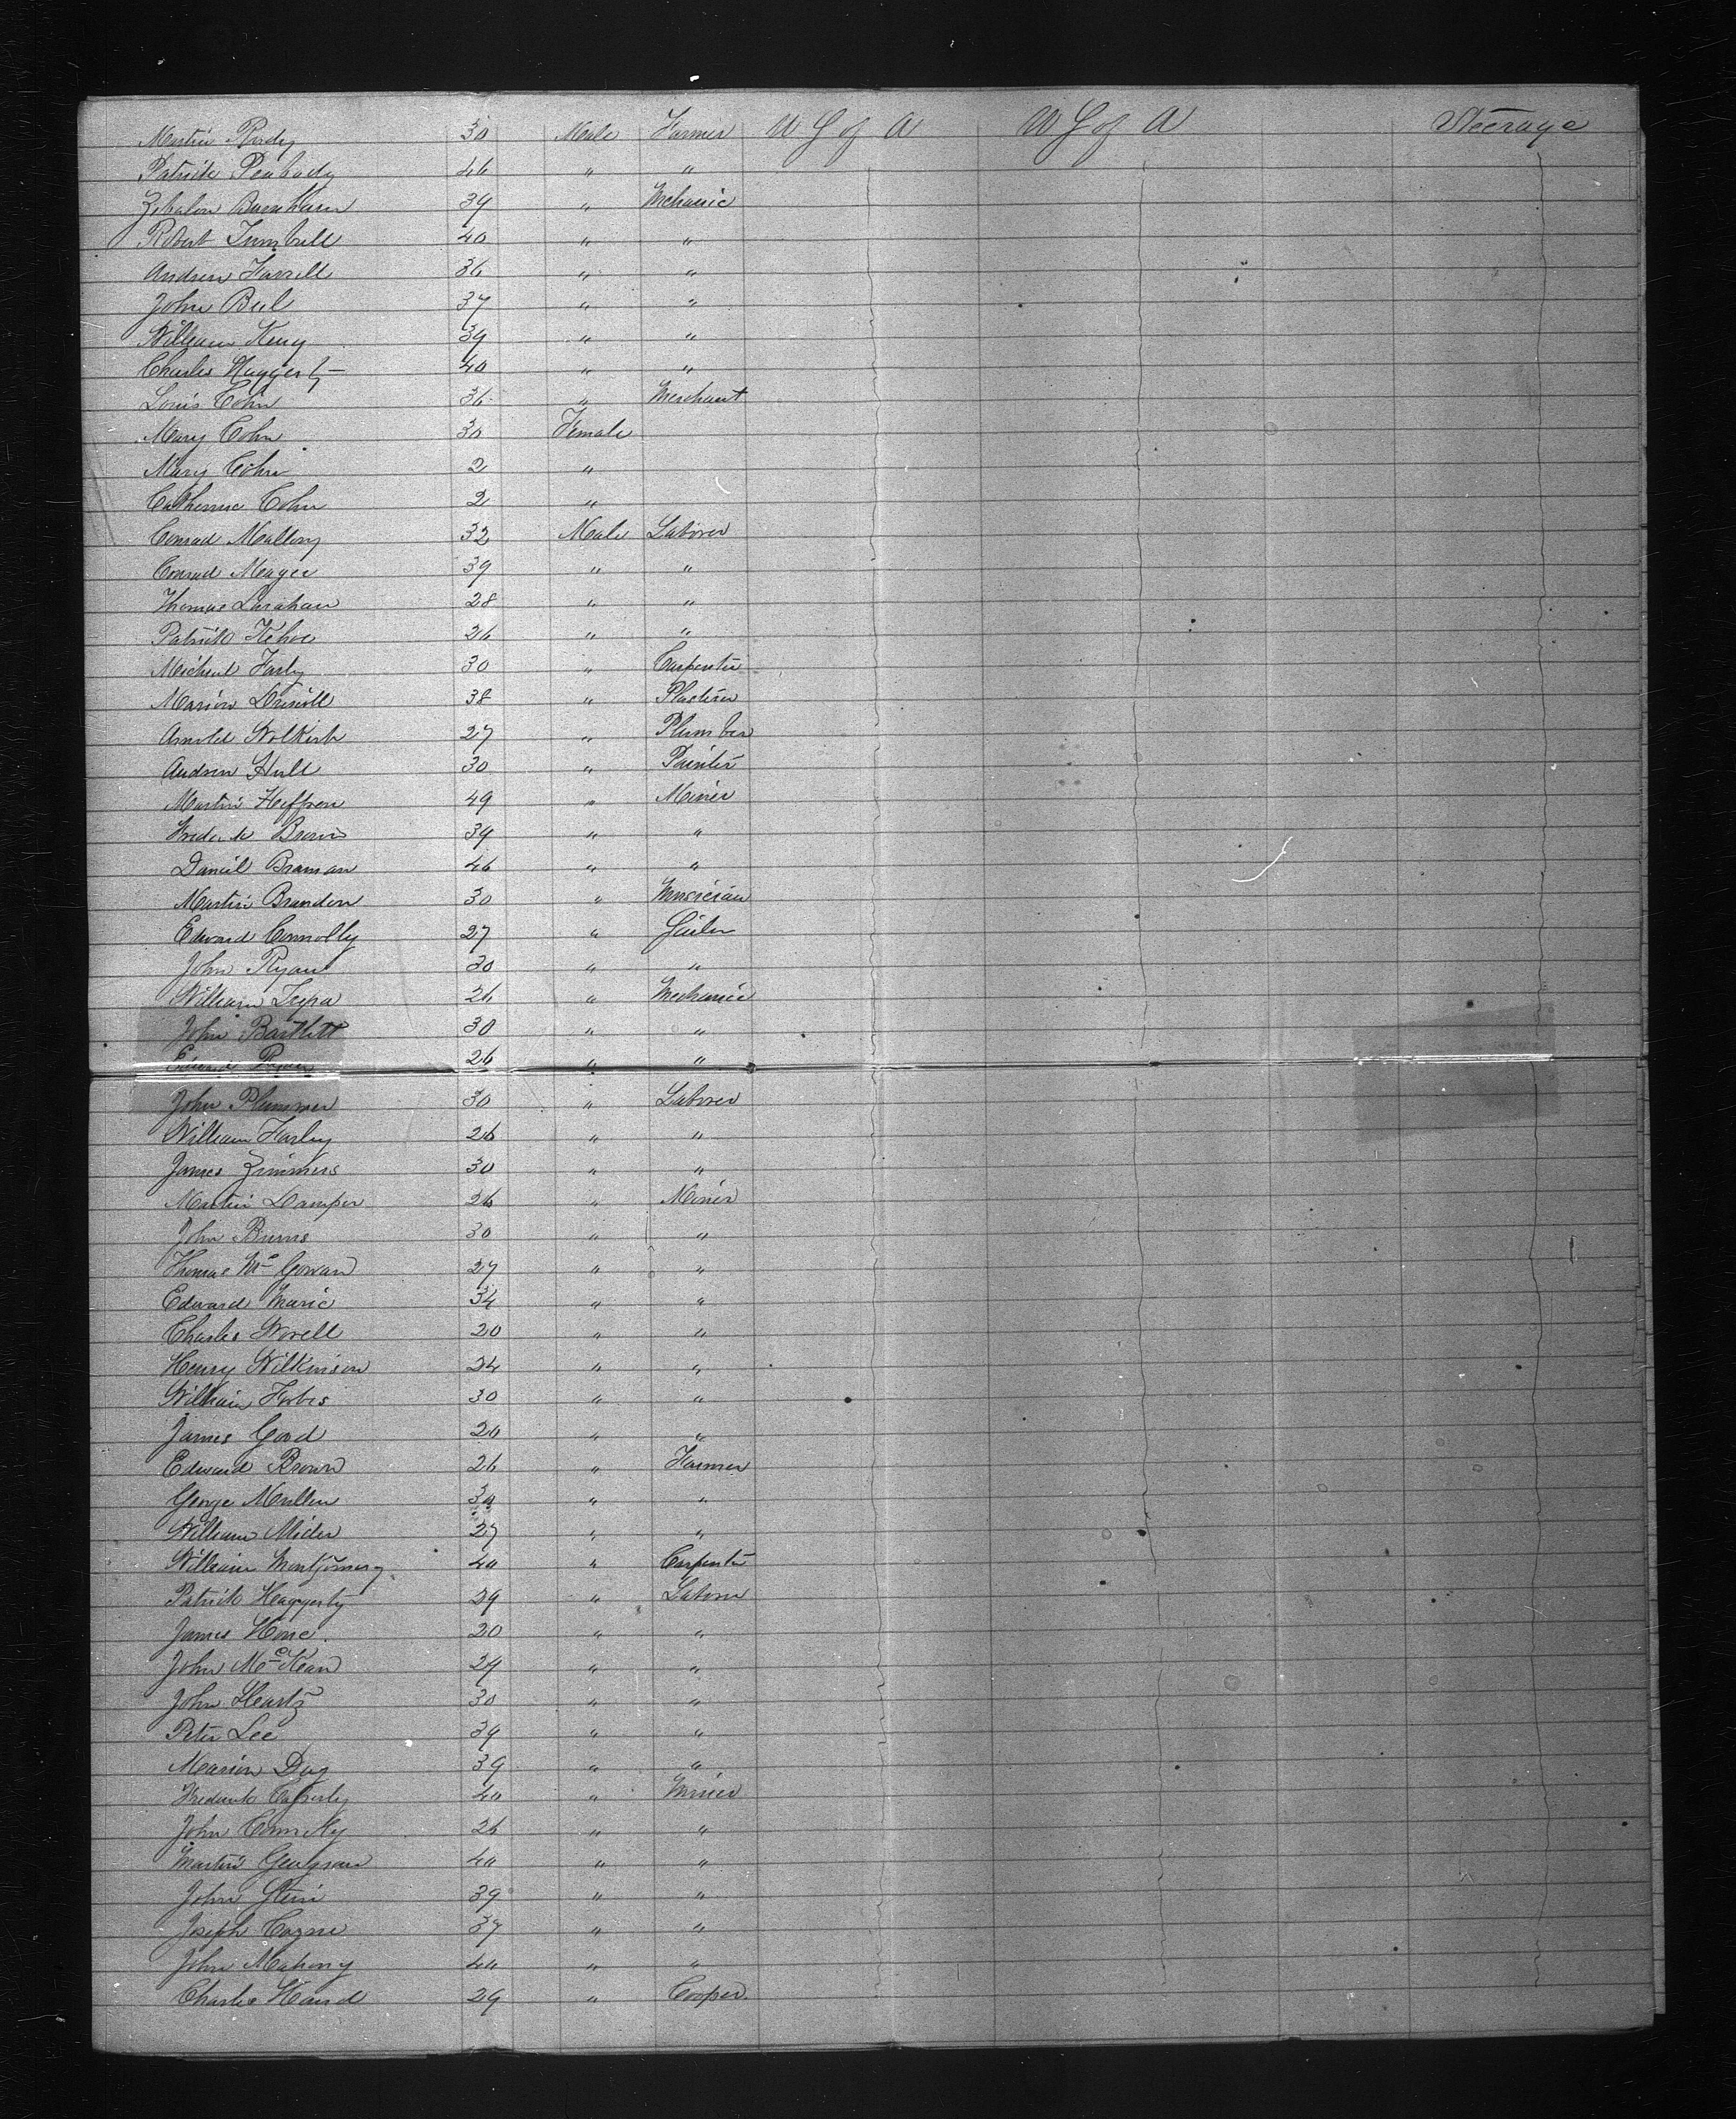 Martin Purdy 30 Male Farmer U S of A U S of A Steerage
Patrick Peabody 46 " "
Zebulon Barnham 39 " Mechanic
Robert Turnbull 40 " "
Andrew Farrell 36 " "
John Bul 37 " "
William Keny 39 " "
Charles Haggerty 40 " "
Louis Cohn 36 " Merchant
Mary Cohn 30 Female
Mary Cohn 2 "
Catherine Cohn 2 "
Conrad Mallory 32 Male Laborer
Conrad Meyer 39 " "
Thomas Larahan 28 " "
Patrick Kehoe 26 " "
Michael Farly 30 " Carpenter
Marion Driscoll 38 " Plasterer
Arnold 27 " Plumber
Andrew Hull 30 " Painter
Martin Heffren 49 " Miner
Frederick Brown 39 " "
Daniel Braman 46 " "
Martin Brandon 30 " Musician
Edward Connolly 27 " Sailor
John Ryan 30 " "
William 26 " Mechanic
John Bartlett 30 " "
Edward 26 " "
John Plummer 30 " Laborer
William Farley 26 " "
James Zimmers 30 " "
Martin Damper 26 " Miner
John Burns 30 " "
Thomas McGowan 27 " "
Edward Marie 34 " "
Charles Worell 20 " "
Henry Wilkinson 24 " "
William Forbes 30 " "
James Good 20 " "
Edward Brown 26 " Farmer
George Mullen 30 " "
William Mider 27 " "
William Montgomery 40 " Carpenter
Patrick Haggerty 29 " Laborer
James Hone 20 " "
John McKean 29 " "
John Heartz 30 " "
Peter Lee 39 " "
Marion Day 39 " "
Frederick 40 " Miner
John Connelly 26 " "
Martin 40 " "
John Stein 39 " "
Joseph Cozzne 37 " "
John Mahony 40 " "
Charles Hand 29 " Cooper